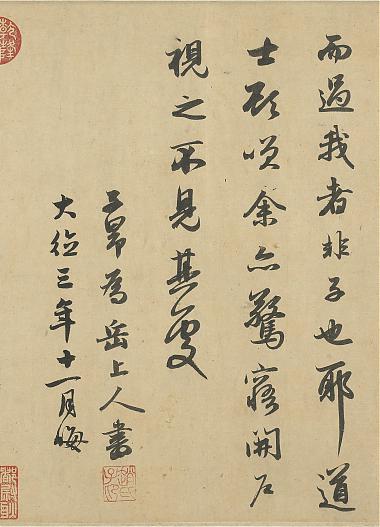 而過我者非子也耶道
士顧笑余亦驚寤開戶
視之不見其處
子昂為岳上人書
大德三年十一月晦
趙氏子昂